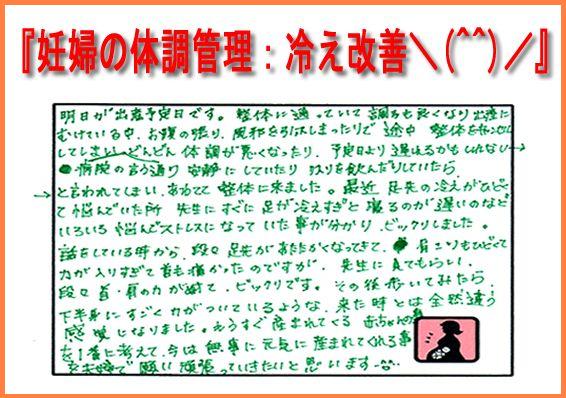 『妊婦の体調管理：冷え改善＼(^^)／』
明日が出産予定日です。整体に通っていて調子も良くなり出産に
むけている中、お腹の張り、風邪を引いてしまったりで途中 整体をお休み
してしまい、どんどん体調が悪くなったり、予定日より遅れるかもしれない
病院の言う通り 安静にしていたり 薬を飲んだりしていたら
と言われてしまい、あわてて整体に来ました。最近 足先の冷えがひどく
て悩んでいた所 先生にすぐに足が冷えすぎと 寝るのが遅いのなど
いろいろ悩んでストレスになっていた事が分かり、ビックリしました。
話をしている時から、段々 足先があたたかくなってきて、肩こりもひどくて
力が入りすぎて首も痛かったのですが、先生に見てもらい、
段々 首・肩の力が抜けて、ビックリです。その後歩いてみたら、
下半身にすごく力がついているような、来た時とは全然違う
感覚になりました。もうすぐ産まれてくる 赤ちゃんの事
を1番に考えて、今は無事に元気に産まれてくれる事
を夫婦で願い頑張っていきたいと思います。^^